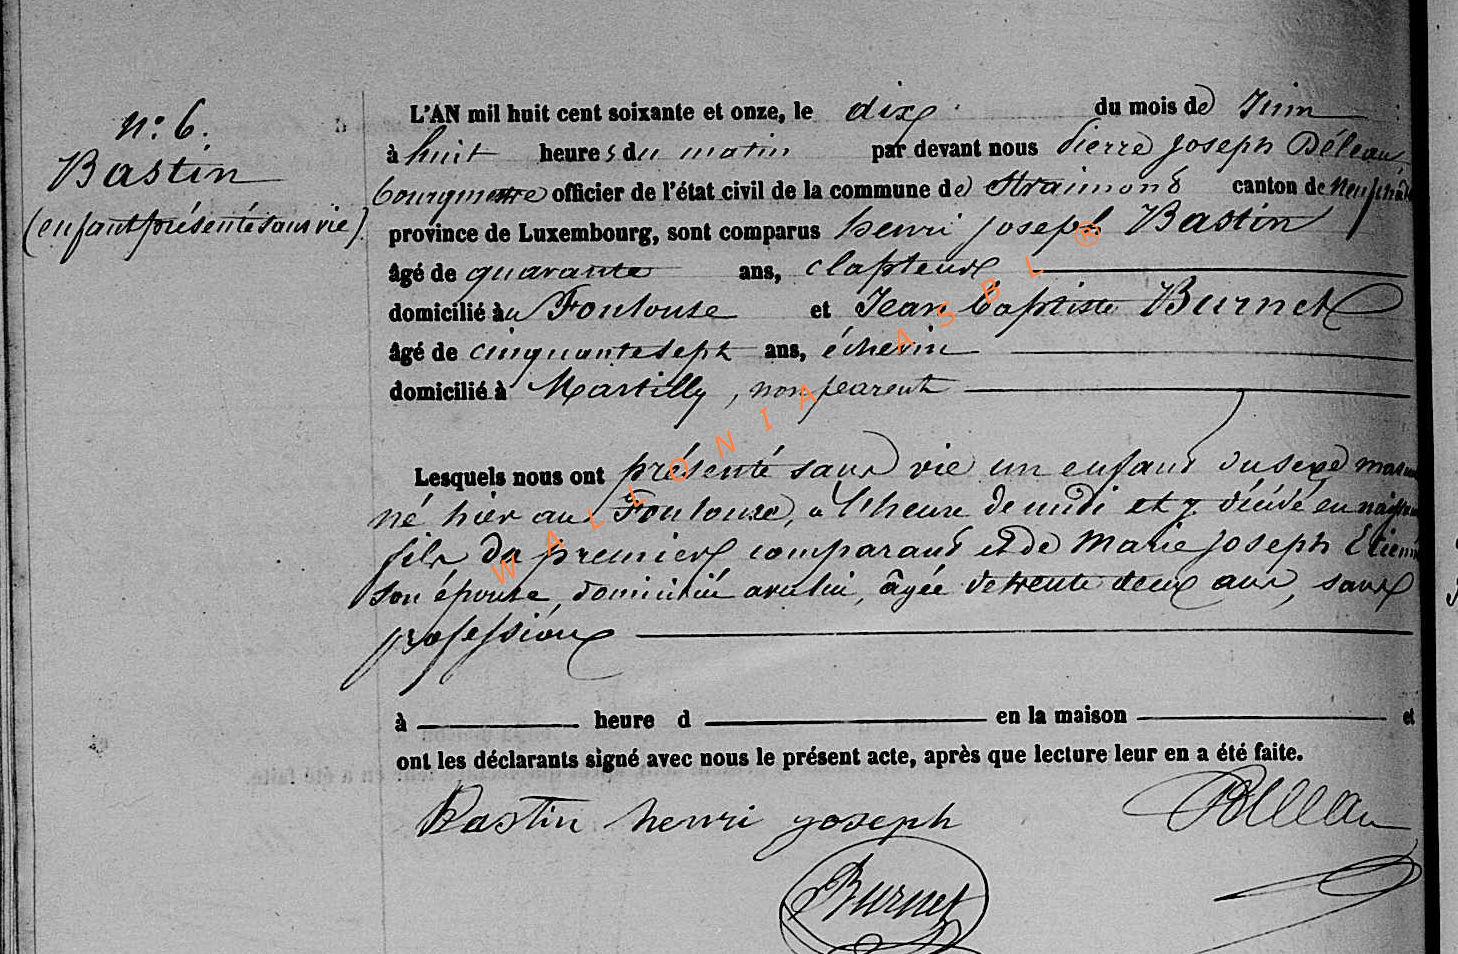 n: 6.
Bastin
(enfant présenté sans vie)
L'AN mil huit cent soixante et onze, le dix du mois de Juin
à huit heures du matin par devant nous Pierre Joseph Déleau
bourgmestre officier de l'état civil de la commune de Straimont canton de Neufchâte
province de Luxembourg, sont comparus henri joseph Bastin
âgé de quarante ans,
domicilié au Foulouse et Jean baptiste Burnet
âgé de cinquante sept ans, échevin
domicilié à Martilly, non parent
Lesquels nous ont présenté sans vie un enfant du sexe mascu
né hier au Foulouse, à l'heure de midi et y décédé en naissan
fils du premier comparant et de Marie joseph Etienn
son épouse, domiciliée avec lui, âgée de trente deux ans, sans
profession
à heure d en la maison et
ont les déclarants signé avec nous le présent acte, après que lecture leur en a été faite.
Bastin henri joseph
Délleau
Burnet
WALLONIA ASBL ®